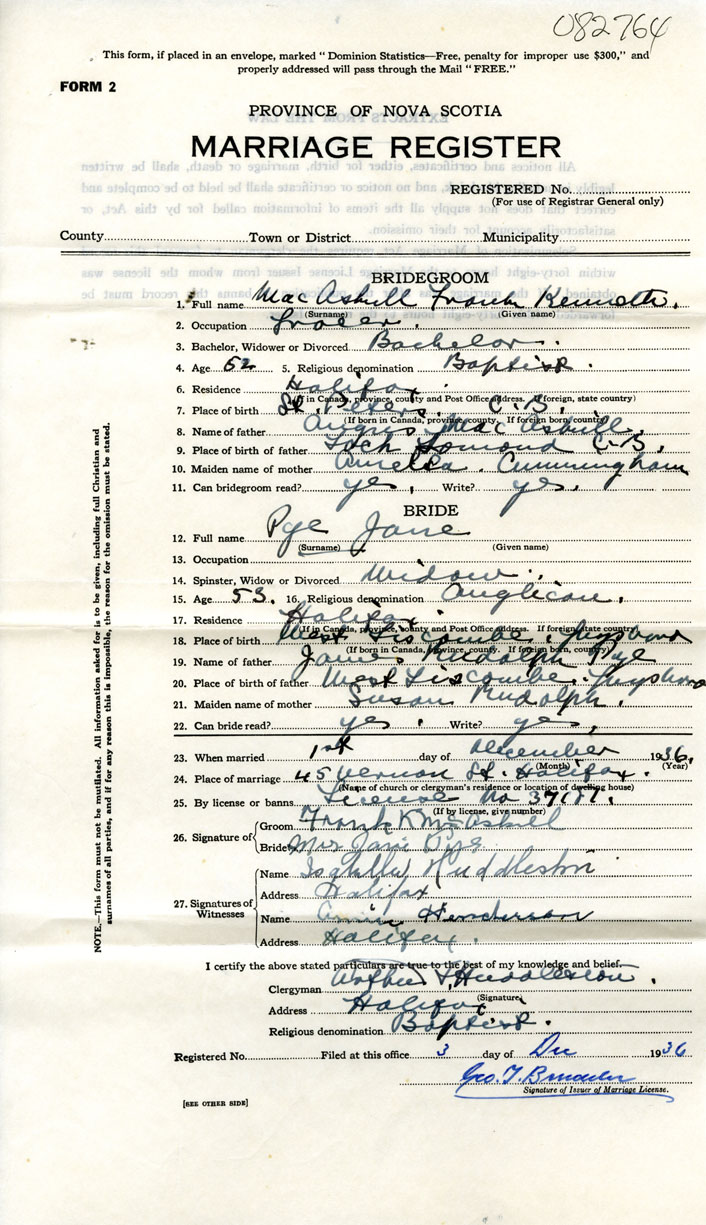 082764
This form, if placed in an envelope, marked "Dominion Statistics—Free, penalty for improper use $300," and
properly addressed will pass through the Mail "FREE."
FORM 2
PROVINCE OF NOVA SCOTIA
MARRIAGE REGISTER
REGISTERED No.
(For use of Registrar General only)
County Town or District Municipality
BRIDEGROOM
1. Full name MacAskill Frank Kenneth.
(Surname) (Given name)
2. Occupation
3. Bachelor, Widower or Divorced Bachelor.
4. Age 52 5. Religious denomination Baptist.
6. Residence Halifax
(If in Canada, province, county and Post Office address. If foreign, state country)
7. Place of birth St. Peters, C.B.
(If born in Canada, province, county. If foreign born, country)
8. Name of father Angus MacAskill
9. Place of birth of father Loch Lomond C.B.
10. Maiden name of mother Amelia. Cunningham
11. Can bridegroom read? yes, Write? yes.
BRIDE
12. Full name Pye Jane
(Surname) (Given name)
13. Occupation
14. Spinster, Widow or Divorced Widow.
15. Age 53. 16. Religious denomination Anglican.
17. Residence Halifax
(If in Canada, province, county and Post Office address. If foreign state country)
18. Place of birth West Liscombe. Guysboro
(If born in Canada, province, county. If foreign born, country)
19. Name of father James Rudolph Pye
20. Place of birth of father West Liscombe. Guysboro
21. Maiden name of mother Susan Rudolph.
22. Can bride read? yes, Write? yes,
23. When married 1st day of December 1936.
(Month) (Year)
24. Place of marriage 45 Vernon St. Halifax.
(Name of church or clergyman's residence or location of dwelling house)
25. By license or banns License No
(If by license, give number)
26. Signature of Groom Frank K McAskill
Bride Mrs Jane Pye
27. Signatures of Witnesses
Name Isabelle Huddleston
Address Halifax
Name Henderson
Address Halifax.
I certify the above stated particulars are true to the best of my knowledge and belief.
Clergyman Arthur Huddleston.
(Signature)
Address Halifax
Religious denomination Baptist.
Registered No. Filed at this office 3 day of Dec 1936
Geo. T.
Signature of Issuer of Marriage License.
[SEE OTHER SIDE]
NOTE.—This form must not be mutilated. All information asked for is to be given, including full Christian and
surnames of all parties, and if for any reason this is impossible, the reason for the omission must be stated.